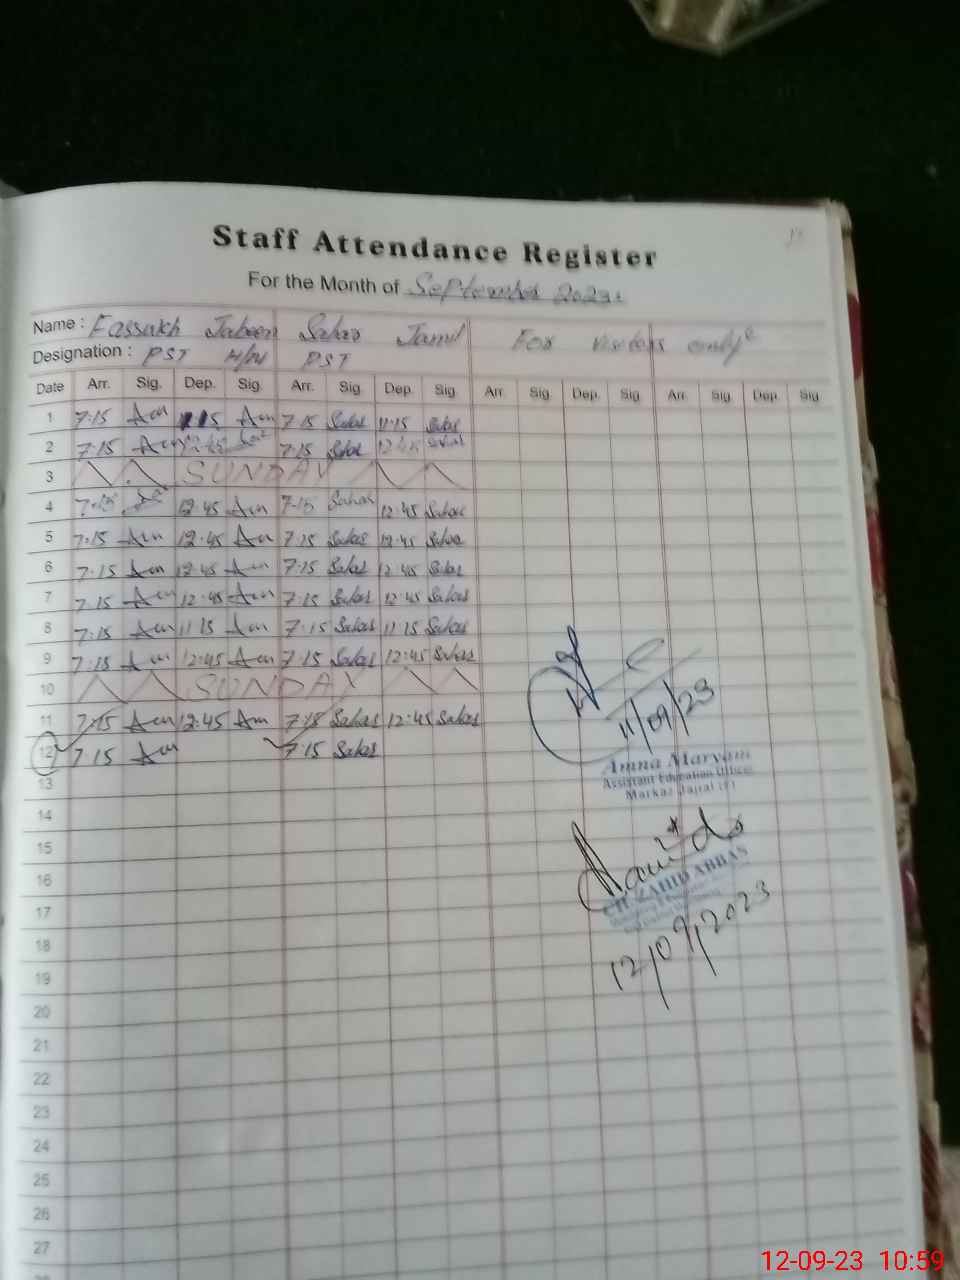 Staff Attendance Register
For the Month of September 2023
Name : Jabeen Sahar Jamil For visitors only
Designation : PST H/W PST
Date Arr. Sig. Dep. Sig. Arr. Sig. Dep. Sig. Arr. Sig. Dep. Sig. Arr. Sig. Dep. Sig.
1 7:15 11:15 7:15 Sahar 11:15 Sahar
2 7:15 12:45 7:15 Sahar 12:45 Sahar
3 SUNDAY
4 7:15 12:45 7:15 Sahar 12:45 Sahar
5 7:15 12:45 7:15 Sahar 12:45 Sahar
6 7:15 12:45 7:15 Sahar 12:45 Sahar
7 7:15 12:45 7:15 Sahar 12:45 Sahar
8 7:15 11 15 7:15 Sahar 11 15 Sahar
9 7:15 12:45 7:15 Sahar 12:45 Sahar
10 SUNDAY
11 7:15 12:45 7:15 Sahar 12:45 Sahar
12 7:15 7:15 Sahar
11/09/23
13
Amna Maryam
Assistant Education Officer
Markaz
14
15
16
CH ZAHID ABBAS
17
18
12/09/2023
19
20
21
22
23
24
25
26
27
12-09-23 10:59